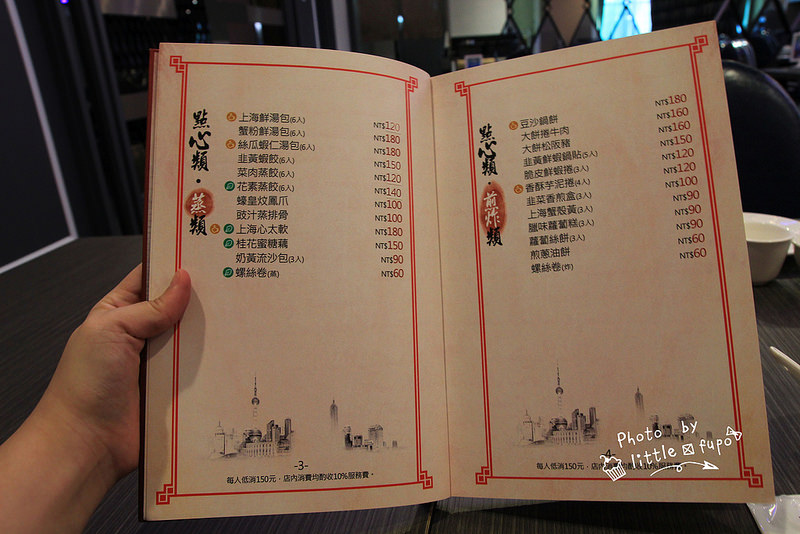 點心類・蒸類
上海鮮湯包(6入) NT$120
蟹粉鮮湯包(6入) NT$180
絲瓜蝦仁湯包(6入) NT$180
韭黃蝦餃(6入) NT$150
菜肉蒸餃(6入) NT$120
花素蒸餃(6入) NT$140
蠔皇炆鳳爪 NT$100
豉汁蒸排骨 NT$100
上海心太軟 NT$180
桂花蜜糖藕 NT$150
奶黃流沙包(3入) NT$90
螺絲卷(蒸) NT$60
-3-
每人低消150元，店內消費均酌收10%服務費。
點心類・煎炸類
豆沙鍋餅 NT$180
大餅捲牛肉 NT$160
大餅松阪豬 NT$160
韭黃鮮蝦鍋貼(5入) NT$150
脆皮鮮蝦捲(3入) NT$120
香酥芋泥捲(4入) NT$120
韭菜香煎盒(3入) NT$100
上海蟹殼黃(3入) NT$90
臘味蘿蔔糕(3入) NT$90
蘿蔔絲餅(3入) NT$90
煎蔥油餅 NT$60
螺絲卷(炸) NT$60
每人低消150元，店內消費均酌收10%
Photo by
little fupo